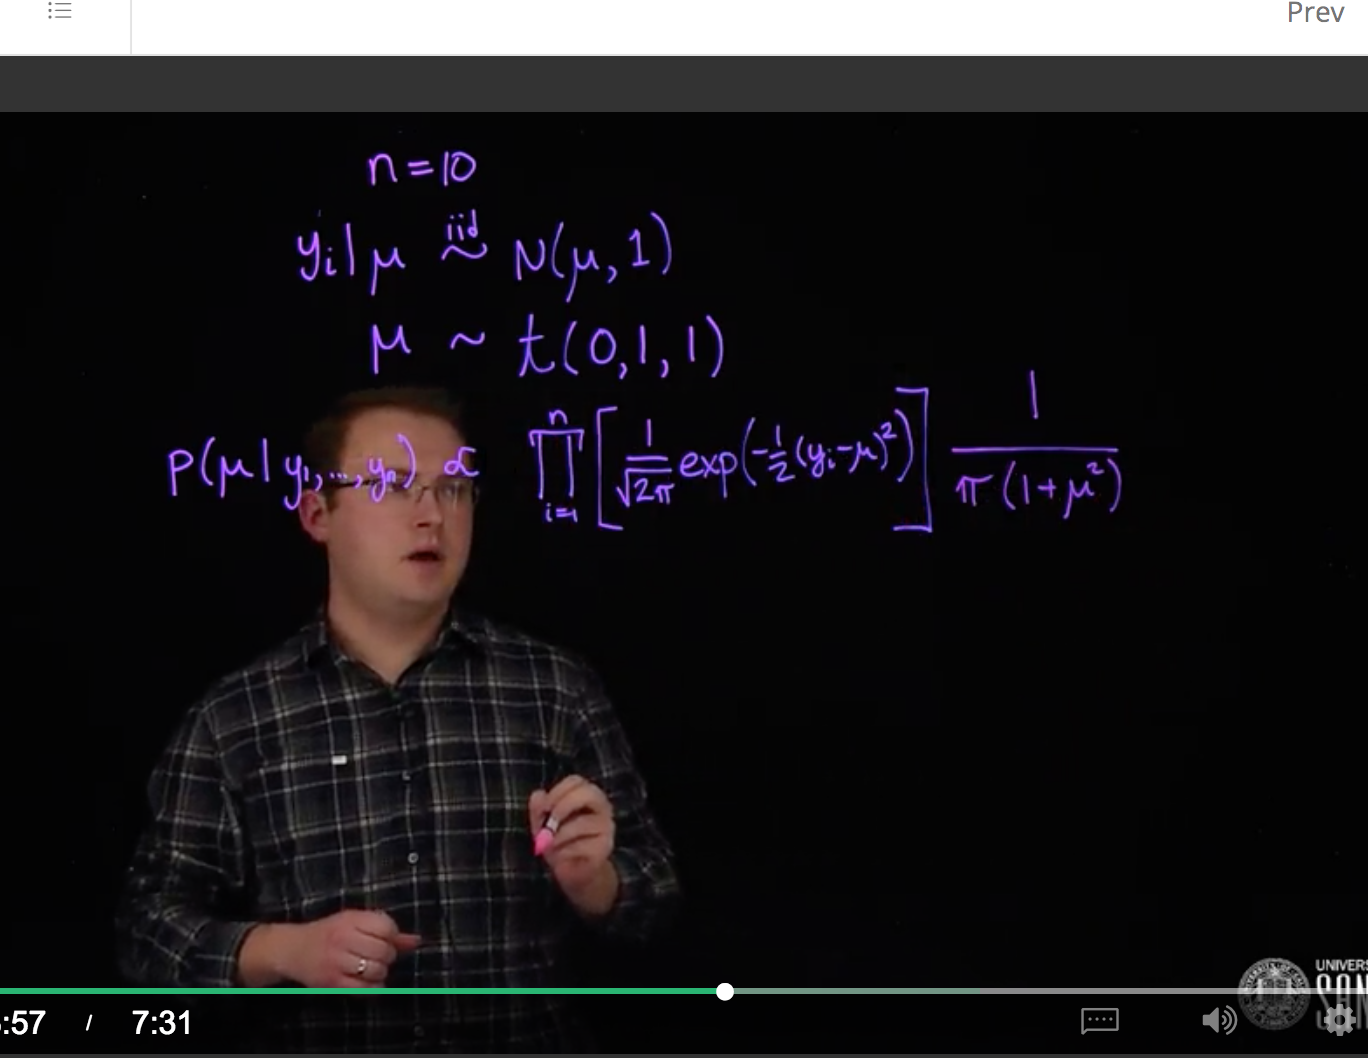 Prev
n = 10
y_i | μ ~^{iid} N(μ, 1)
μ ~ t(0, 1, 1)
p(μ | y_1, ..., y_n) ∝ ∏_{i=1}^{n} [ 1/√(2π) exp(-1/2 (y_i - μ)^2) ] 1/(π(1 + μ^2))
:57 / 7:31